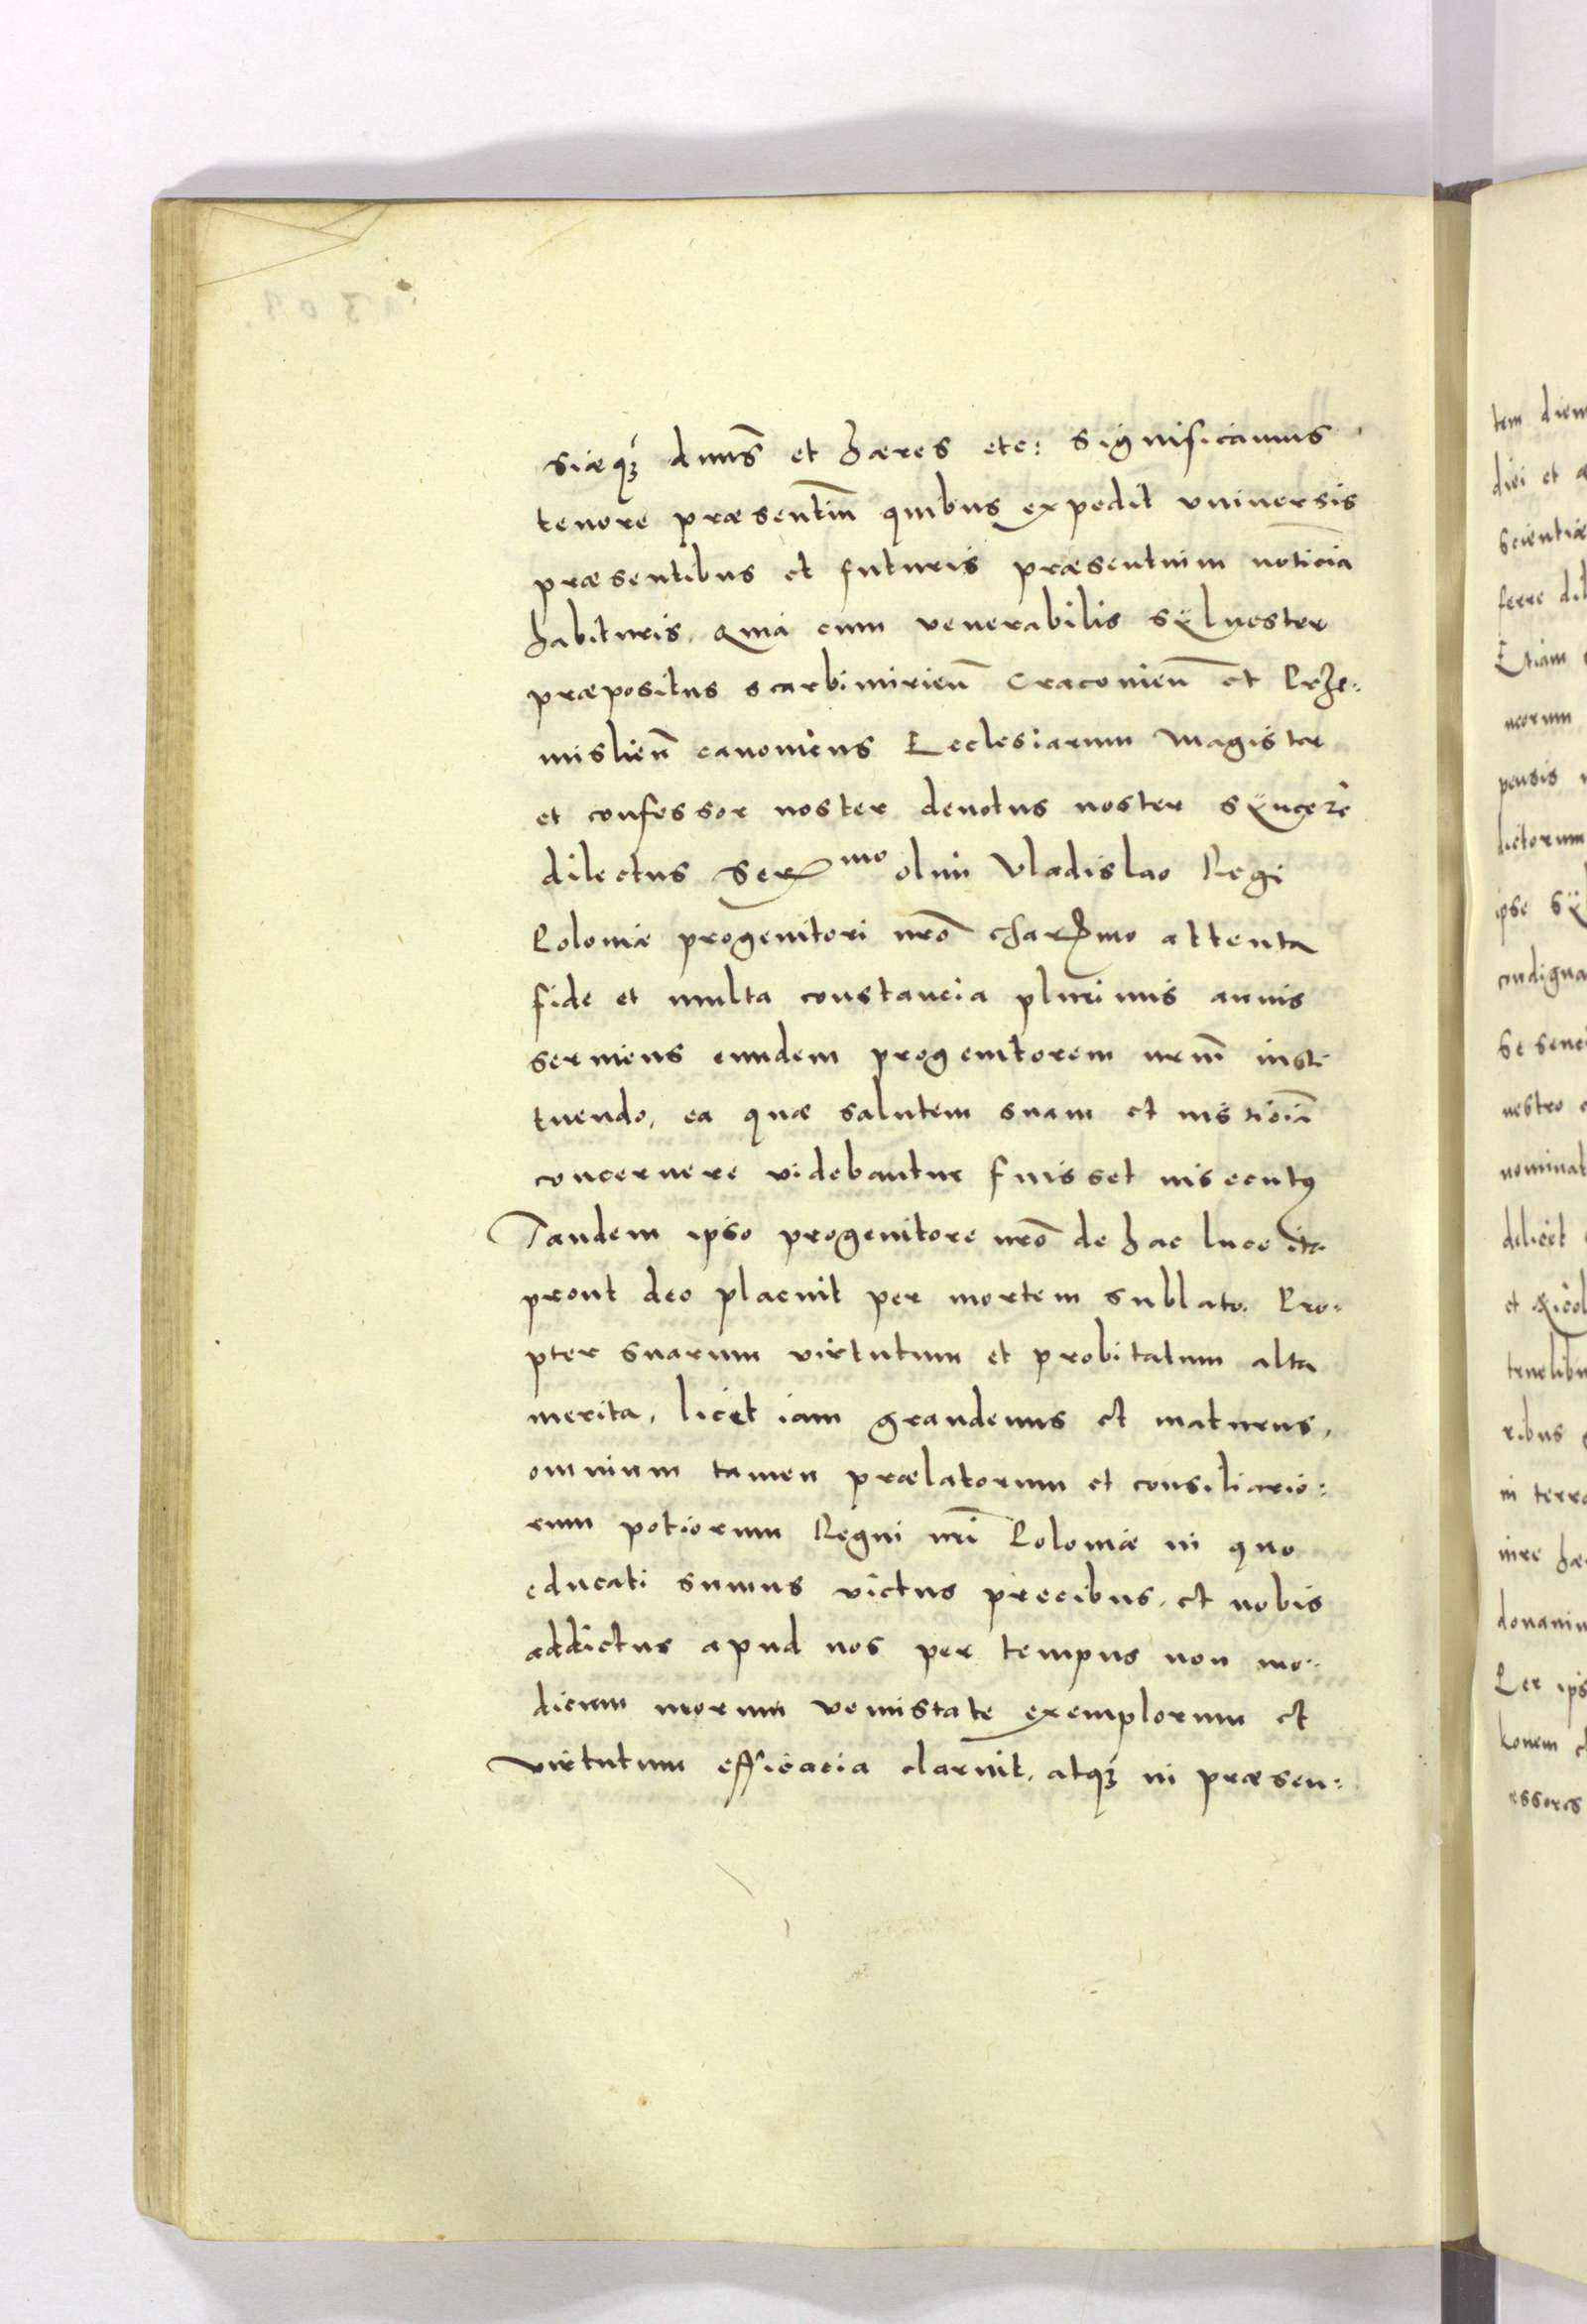 siæq3 dnus̄ et hæres etc: significamus
tenore præsentiū quibus expedit vniuersis
præsentibus et futuris præsentium noticiā
habituris. Quia cum venerabilis sÿluester
præpositus scarbimirieñ Cracouieñ et Prze:
mislieñ canonicus Ecclesiarum magister
et confessor noster deuotus noster sÿncere
dilectus Ser mo olim Vladislao Regi
Poloniæ progenitori nrō charmo attenta
fide et multa constancia plurimis annis
seruiens eundem progenitorem nrm̄ insti
tuendo, ea quæ salutem suam et
concernere videbantur fuisset insecutus
Tandem ipso progenitore nrō de hac luce ita
prout deo placuit per mortem sublato. Pro:
pter suarum virtutum et probitatum alta
merita, licet iam grandeuus et maturus,
omnium tamen prælatorum et consiliario:
rum potiorum Regni nri Poloniæ in quo
educati sumus victus precibus, et nobis
addictus apud nos per tempus non mo:
dicum morum venustate exemplorum et
virtutum efficacia claruit, atq3 in præsen:
tem diem
diei et
scientiæ
ferre
Etiam
pensis
lictorum
ipse
condigna
nostro
nominat
et
in terra
iure hæ
Per ips
konem
essores